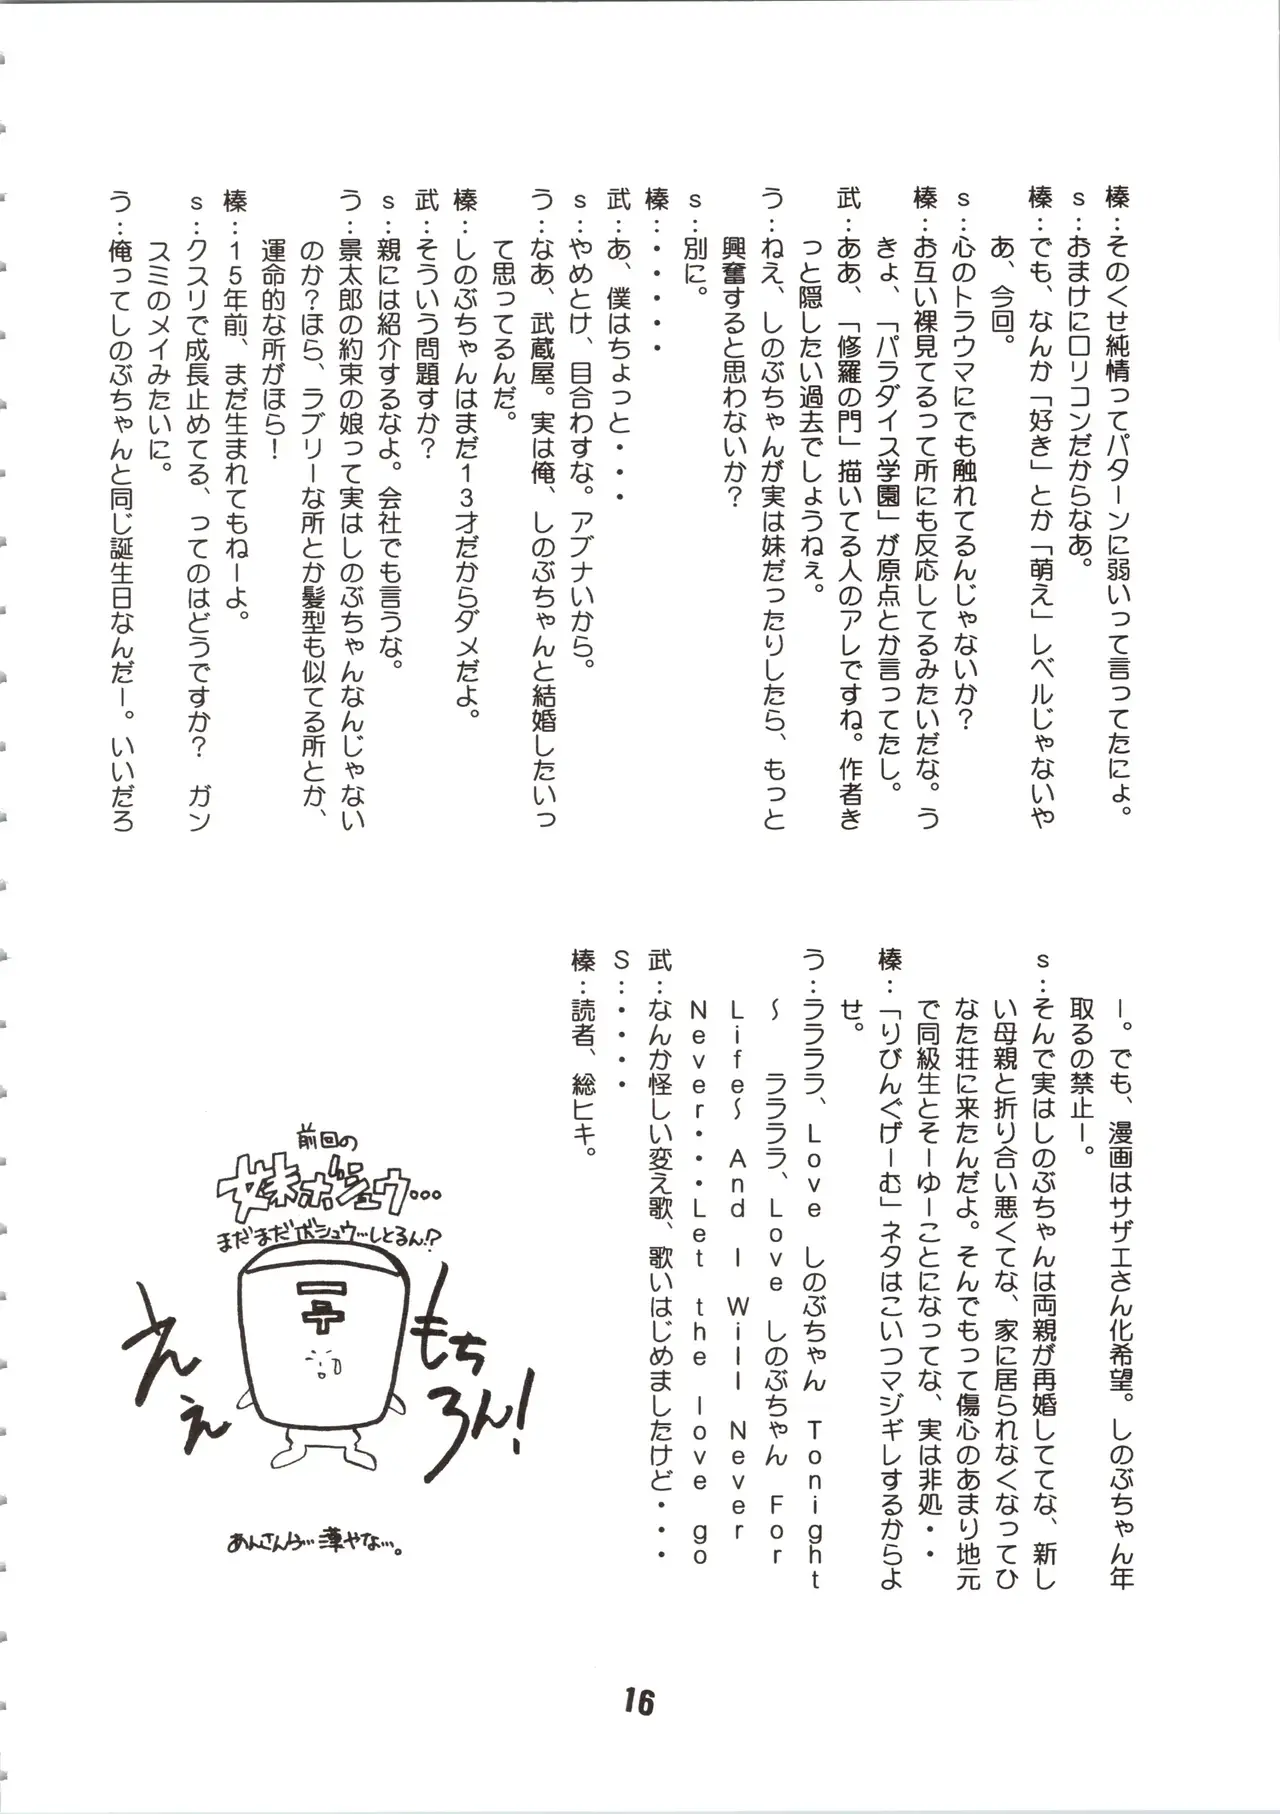 榛：そのくせ純情ってパターンに弱いって言ってたにょ。
s：おまけにロリコンだからなあ。
榛：でも、なんか「好き」とか「萌え」レベルじゃないや
あ、今回。
s：心のトラウマにでも触れてるんじゃないか？
榛：お互い裸見てるって所にも反応してるみたいだな。う
きょ、「パラダイス学園」が原点とか言ってたし。
武：ああ、「修羅の門」描いてる人のアレですね。作者き
っと隠したい過去でしょうねぇ。
う：ねえ、しのぶちゃんが実は妹だったりしたら、もっと
興奮すると思わないか？
s：別に。
榛：・・・・・
武：あ、僕はちょっと・・・
s：やめとけ、目合わすな。アブナいから。
う：なあ、武蔵屋。実は俺、しのぶちゃんと結婚したいっ
て思ってるんだ。
榛：しのぶちゃんはまだ13才だからダメだよ。
武：そういう問題すか？
s：親には紹介するなよ。会社でも言うな。
う：景太郎の約束の娘って実はしのぶちゃんなんじゃない
のか？ほら、ラブリーな所とか髪型も似てる所とか、
運命的な所がほら！
榛：15年前、まだ生まれてもねーよ。
s：クスリで成長止めてる、ってのはどうですか？　ガン
スミのメイみたいに。
う：俺ってしのぶちゃんと同じ誕生日なんだー。いいだろ
ー。でも、漫画はサザエさん化希望。しのぶちゃん年
取るの禁止ー。
s：そんで実はしのぶちゃんは両親が再婚しててな、新し
い母親と折り合い悪くてな、家に居られなくなってひ
なた荘に来たんだよ。そんでもって傷心のあまり地元
で同級生とそーゆーことになってな、実は非処・・
榛：「りびんぐげーむ」ネタはこいつマジギレするからよ
せ。
う：ララララ、Love しのぶちゃん Tonight
～　ララララ、Love しのぶちゃん For
Life～ And I Will Never
Never・・・Let the love go
武：なんか怪しい変え歌、歌いはじめましたけど・・・
S：・・・・・
榛：読者、総ヒキ。
前回の
妹ボシュウ…
まだまだボシュウ…しとるん!?
もち
ろん!
えぇ
あんさんら…薄やな…。
16